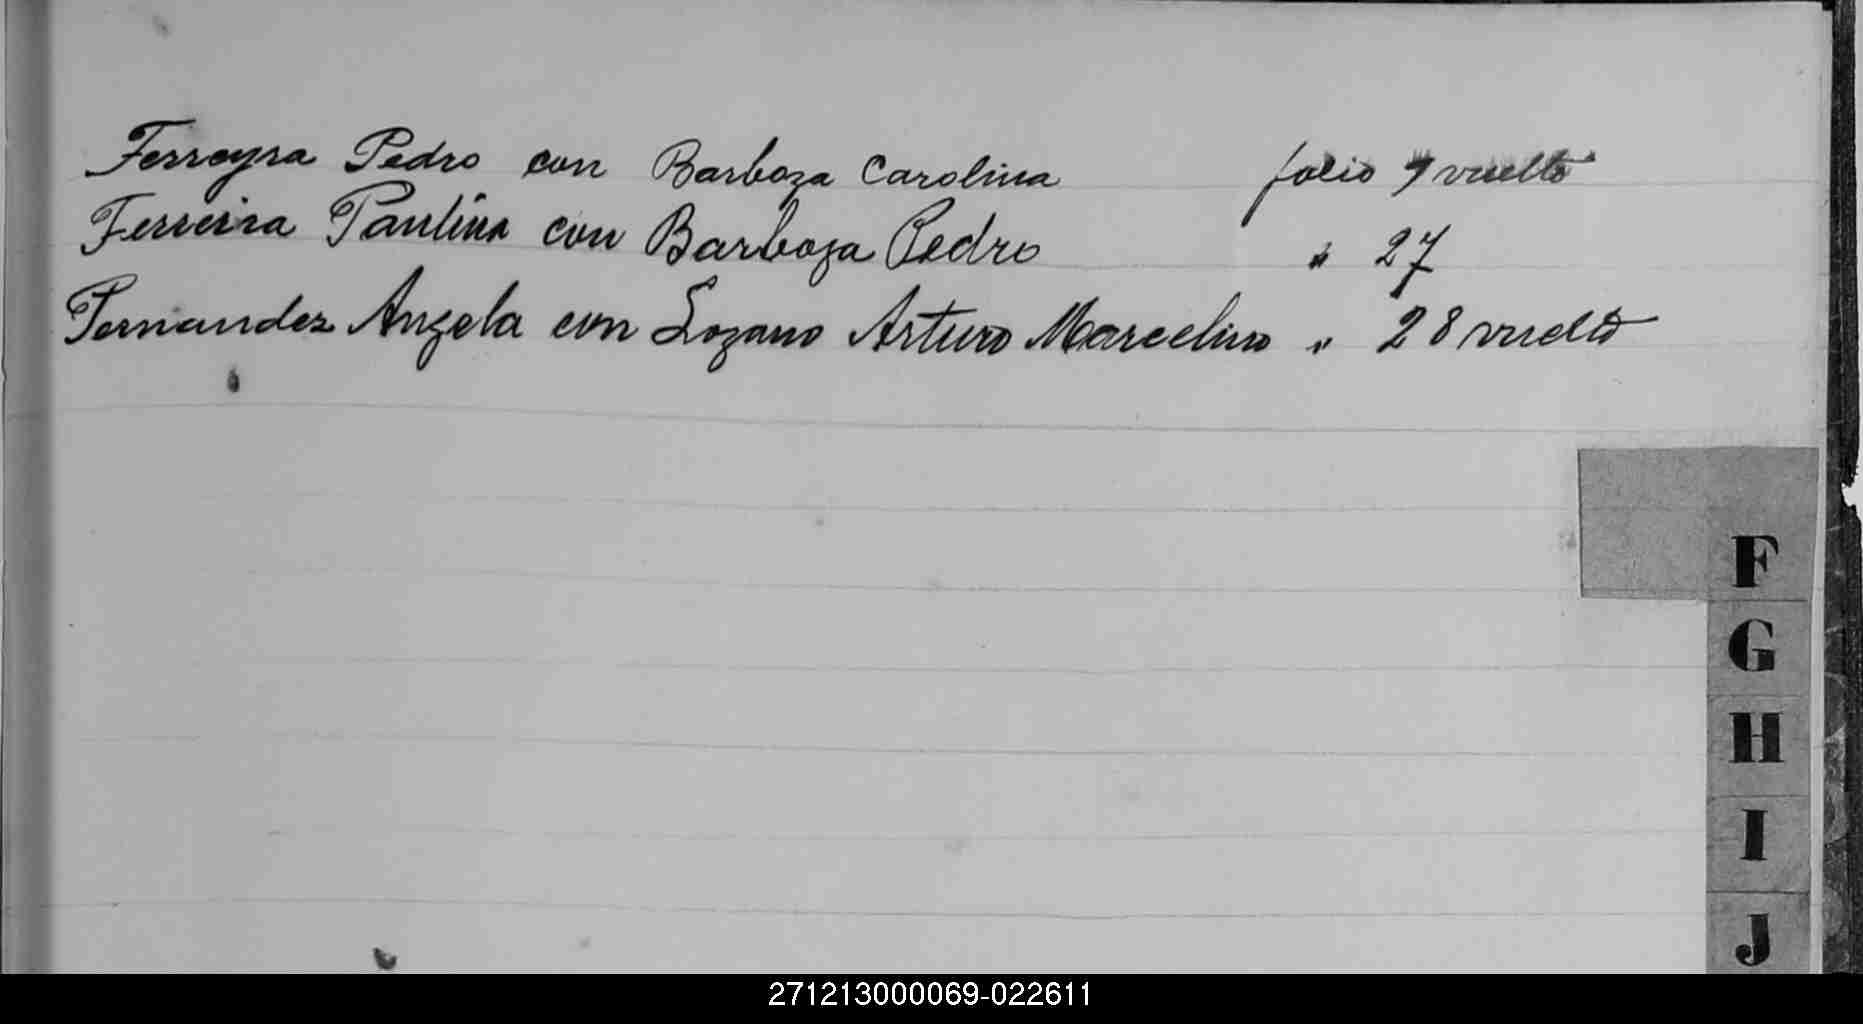 Ferreyra Pedro con Barboza Carolina folio 7 vuelto
Ferreira Paulina con Barboza Pedro " 27
Fernandez Angela con Lozano Arturo Marcelino " 28 vuelto
F
G
H
I
J
271213000069-022611